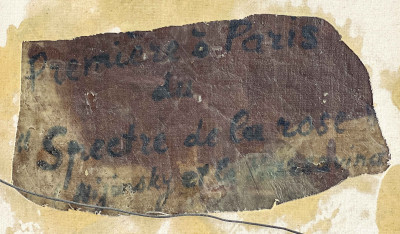 Première à Paris
du
"Spectre de la rose"
Nijinsky et la